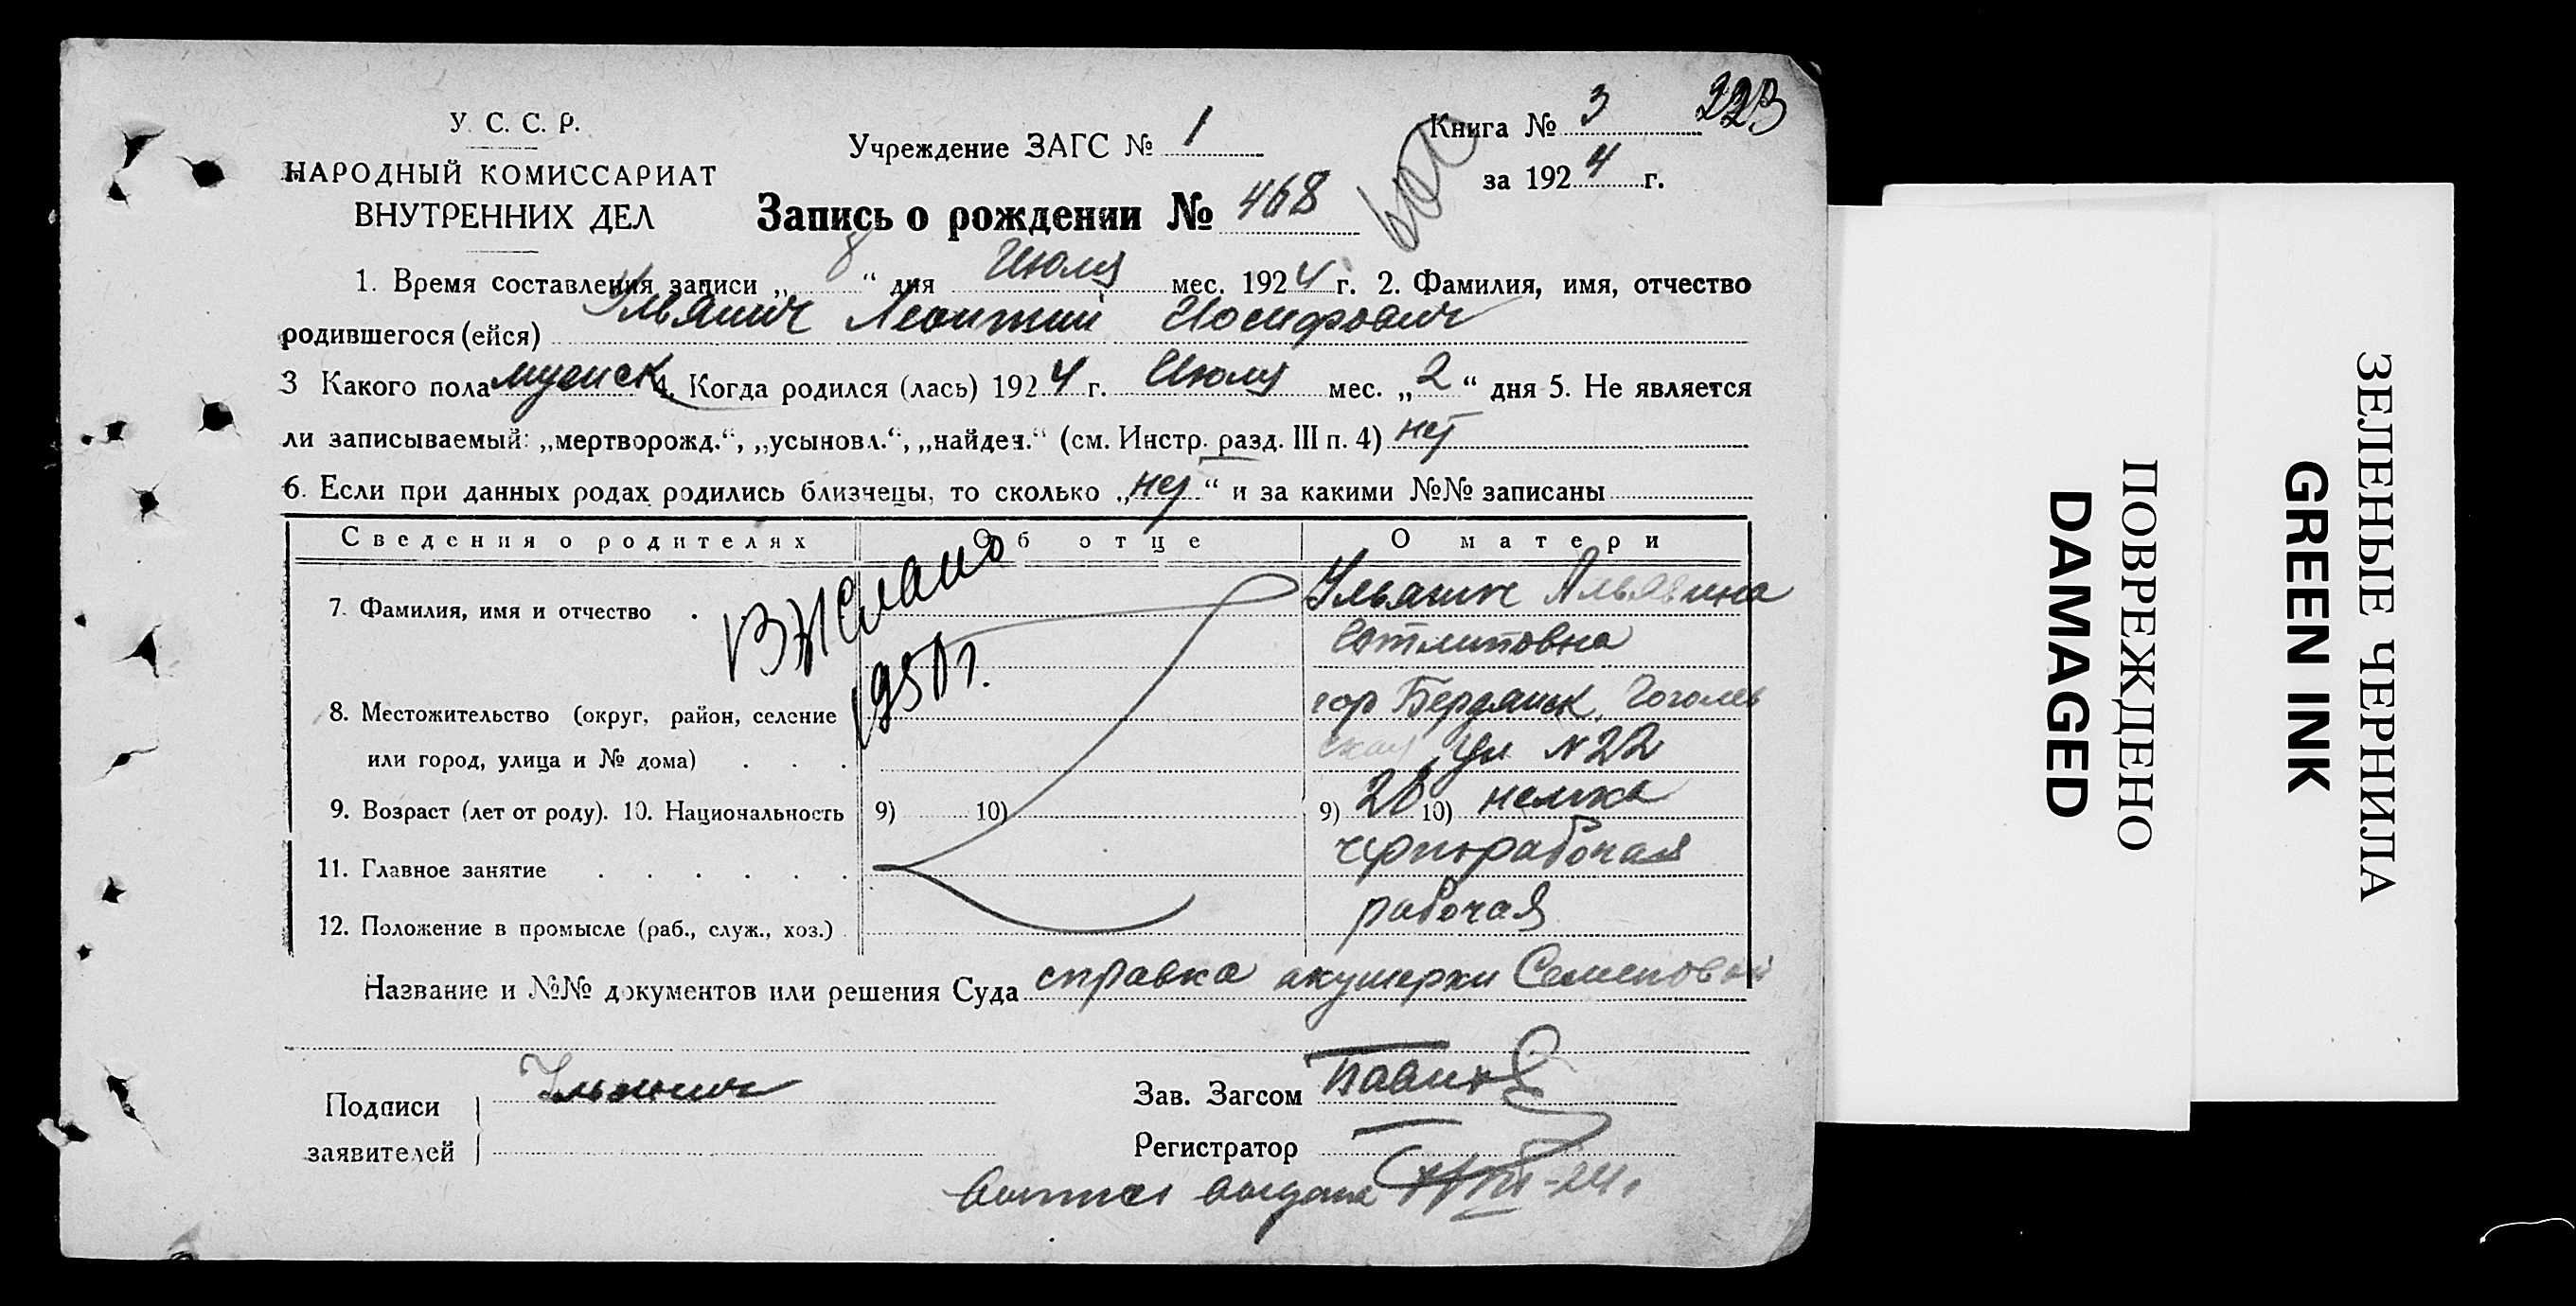 223
У. С. С. Р.
НАРОДНЫЙ КОМИССАРИАТ
ВНУТРЕННИХ ДЕЛ
Учреждение ЗАГС № 1
Книга № 3
за 1924 г.
Запись о рождении № 468
1. Время составления записи „ 8 “ дня Июля мес. 1924 г. 2. Фамилия, имя, отчество
родившегося (ейся) Ульянич Леонтий Иосифович
3 Какого пола мужск 4. Когда родился (лась) 1924 г. Июля мес. „ 2 “ дня 5. Не является
ли записываемый: „мертворожд.“, „усыновл.“, „найден.“ (см. Инстр. разд. III п. 4) нет
6. Если при данных родах родились близнецы, то сколько „ нет “ и за какими №№ записаны
Сведения о родителях Об отце О матери
7. Фамилия, имя и отчество Ульянич Альвина
Готлиповна
1950 г.
8. Местожительство (округ, район, селение гор Бердянск, Гоголев
или город, улица и № дома) ская ул N 22
9. Возраст (лет от роду). 10. Национальность 9) 10) 9) 28 10) немка
11. Главное занятие чернорабочая
12. Положение в промысле (раб., служ., хоз.) рабочая
Название и №№ документов или решения Суда справка акушерки Семеновой
Подписи Ульянич Зав. Загсом
заявителей Регистратор
выдана
ЗЕЛЕНЫЕ ЧЕРНИЛА
GREEN INK
ПОВРЕЖДЕНО
DAMAGED